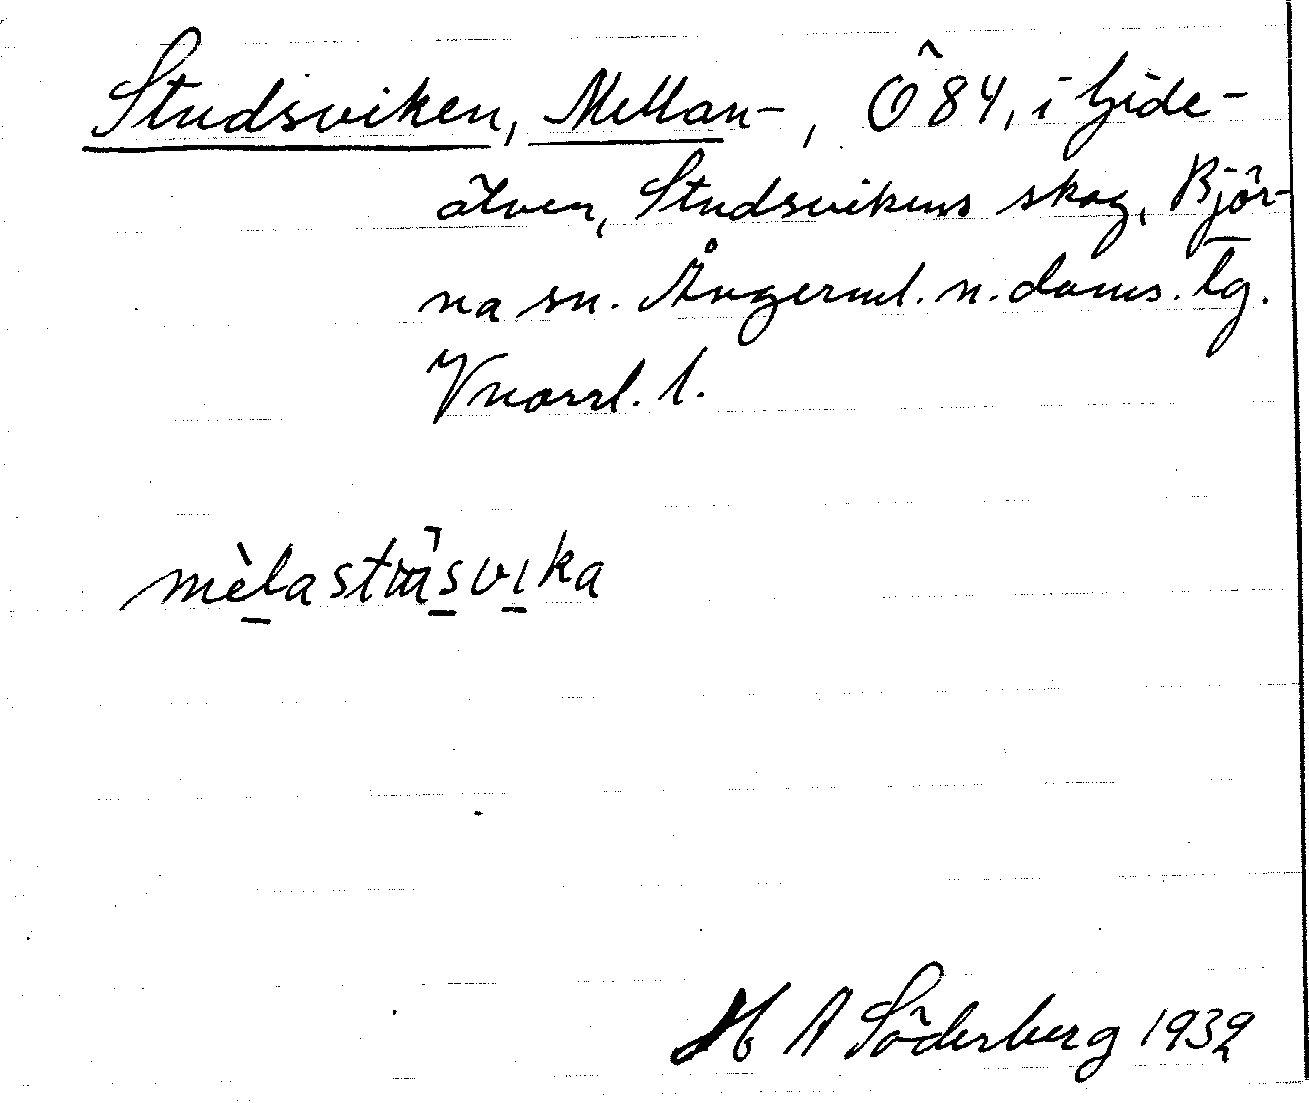 Studsviken, Mellan-, Ö 84, i Gide-
älven, Studsvikens skog, Björ-
na sn. Ångerml. n. doms. tg.
Vnorrl. l.
H A Söderberg 1932